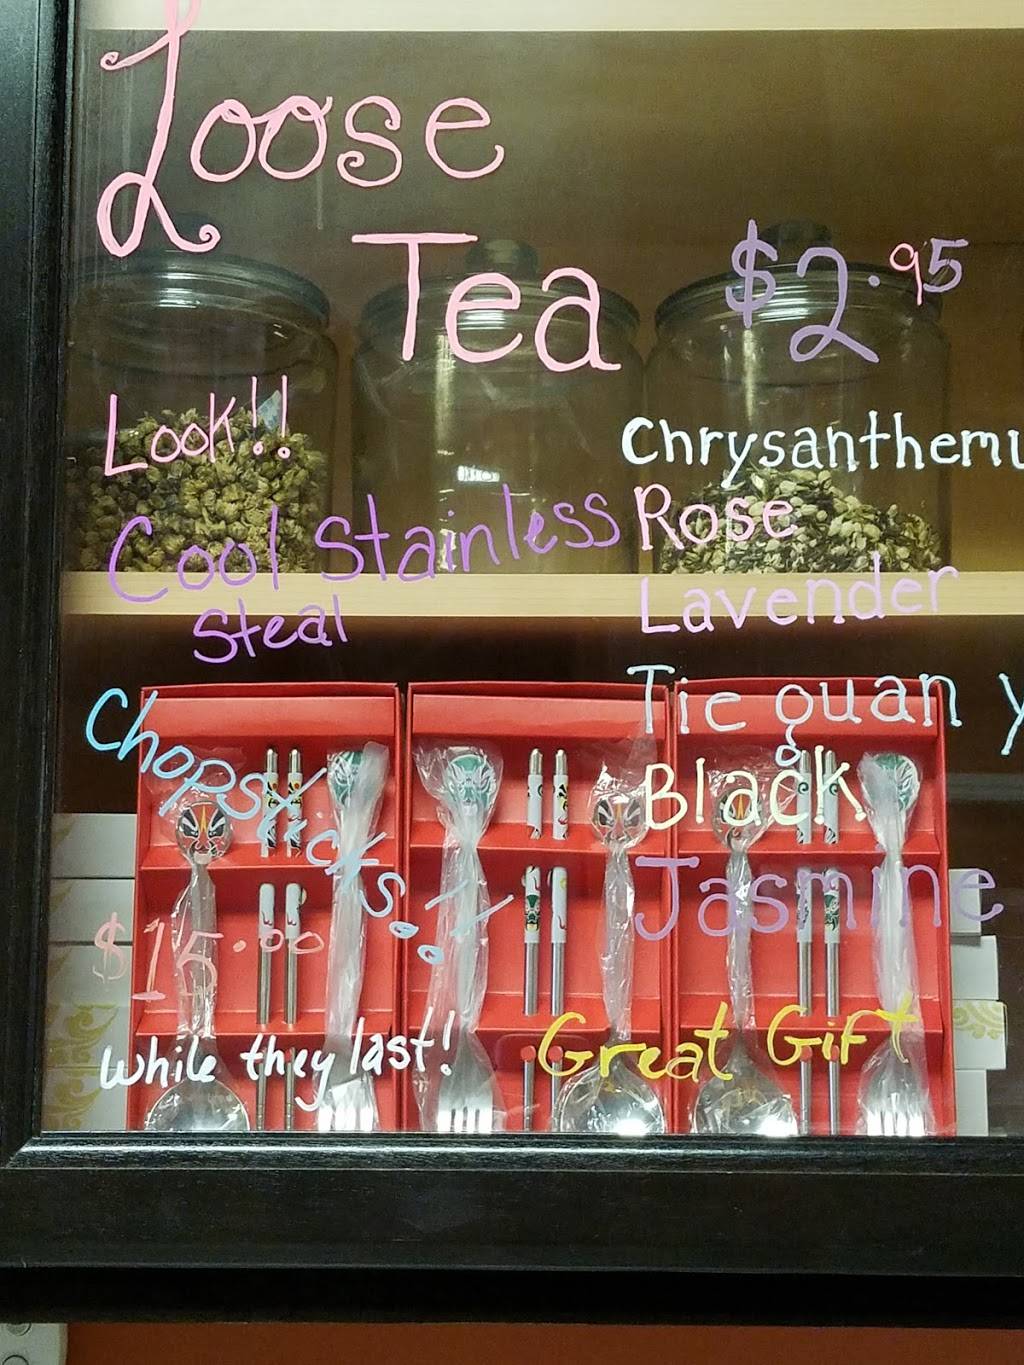 Loose
Tea
$2.95
Look!!
Cool Stainless
Steal
Chopsticks..!!
$15.00
While they last!
Chrysanthemu
Rose
Lavender
Tie guan y
Black
Jasmine
Great Gift